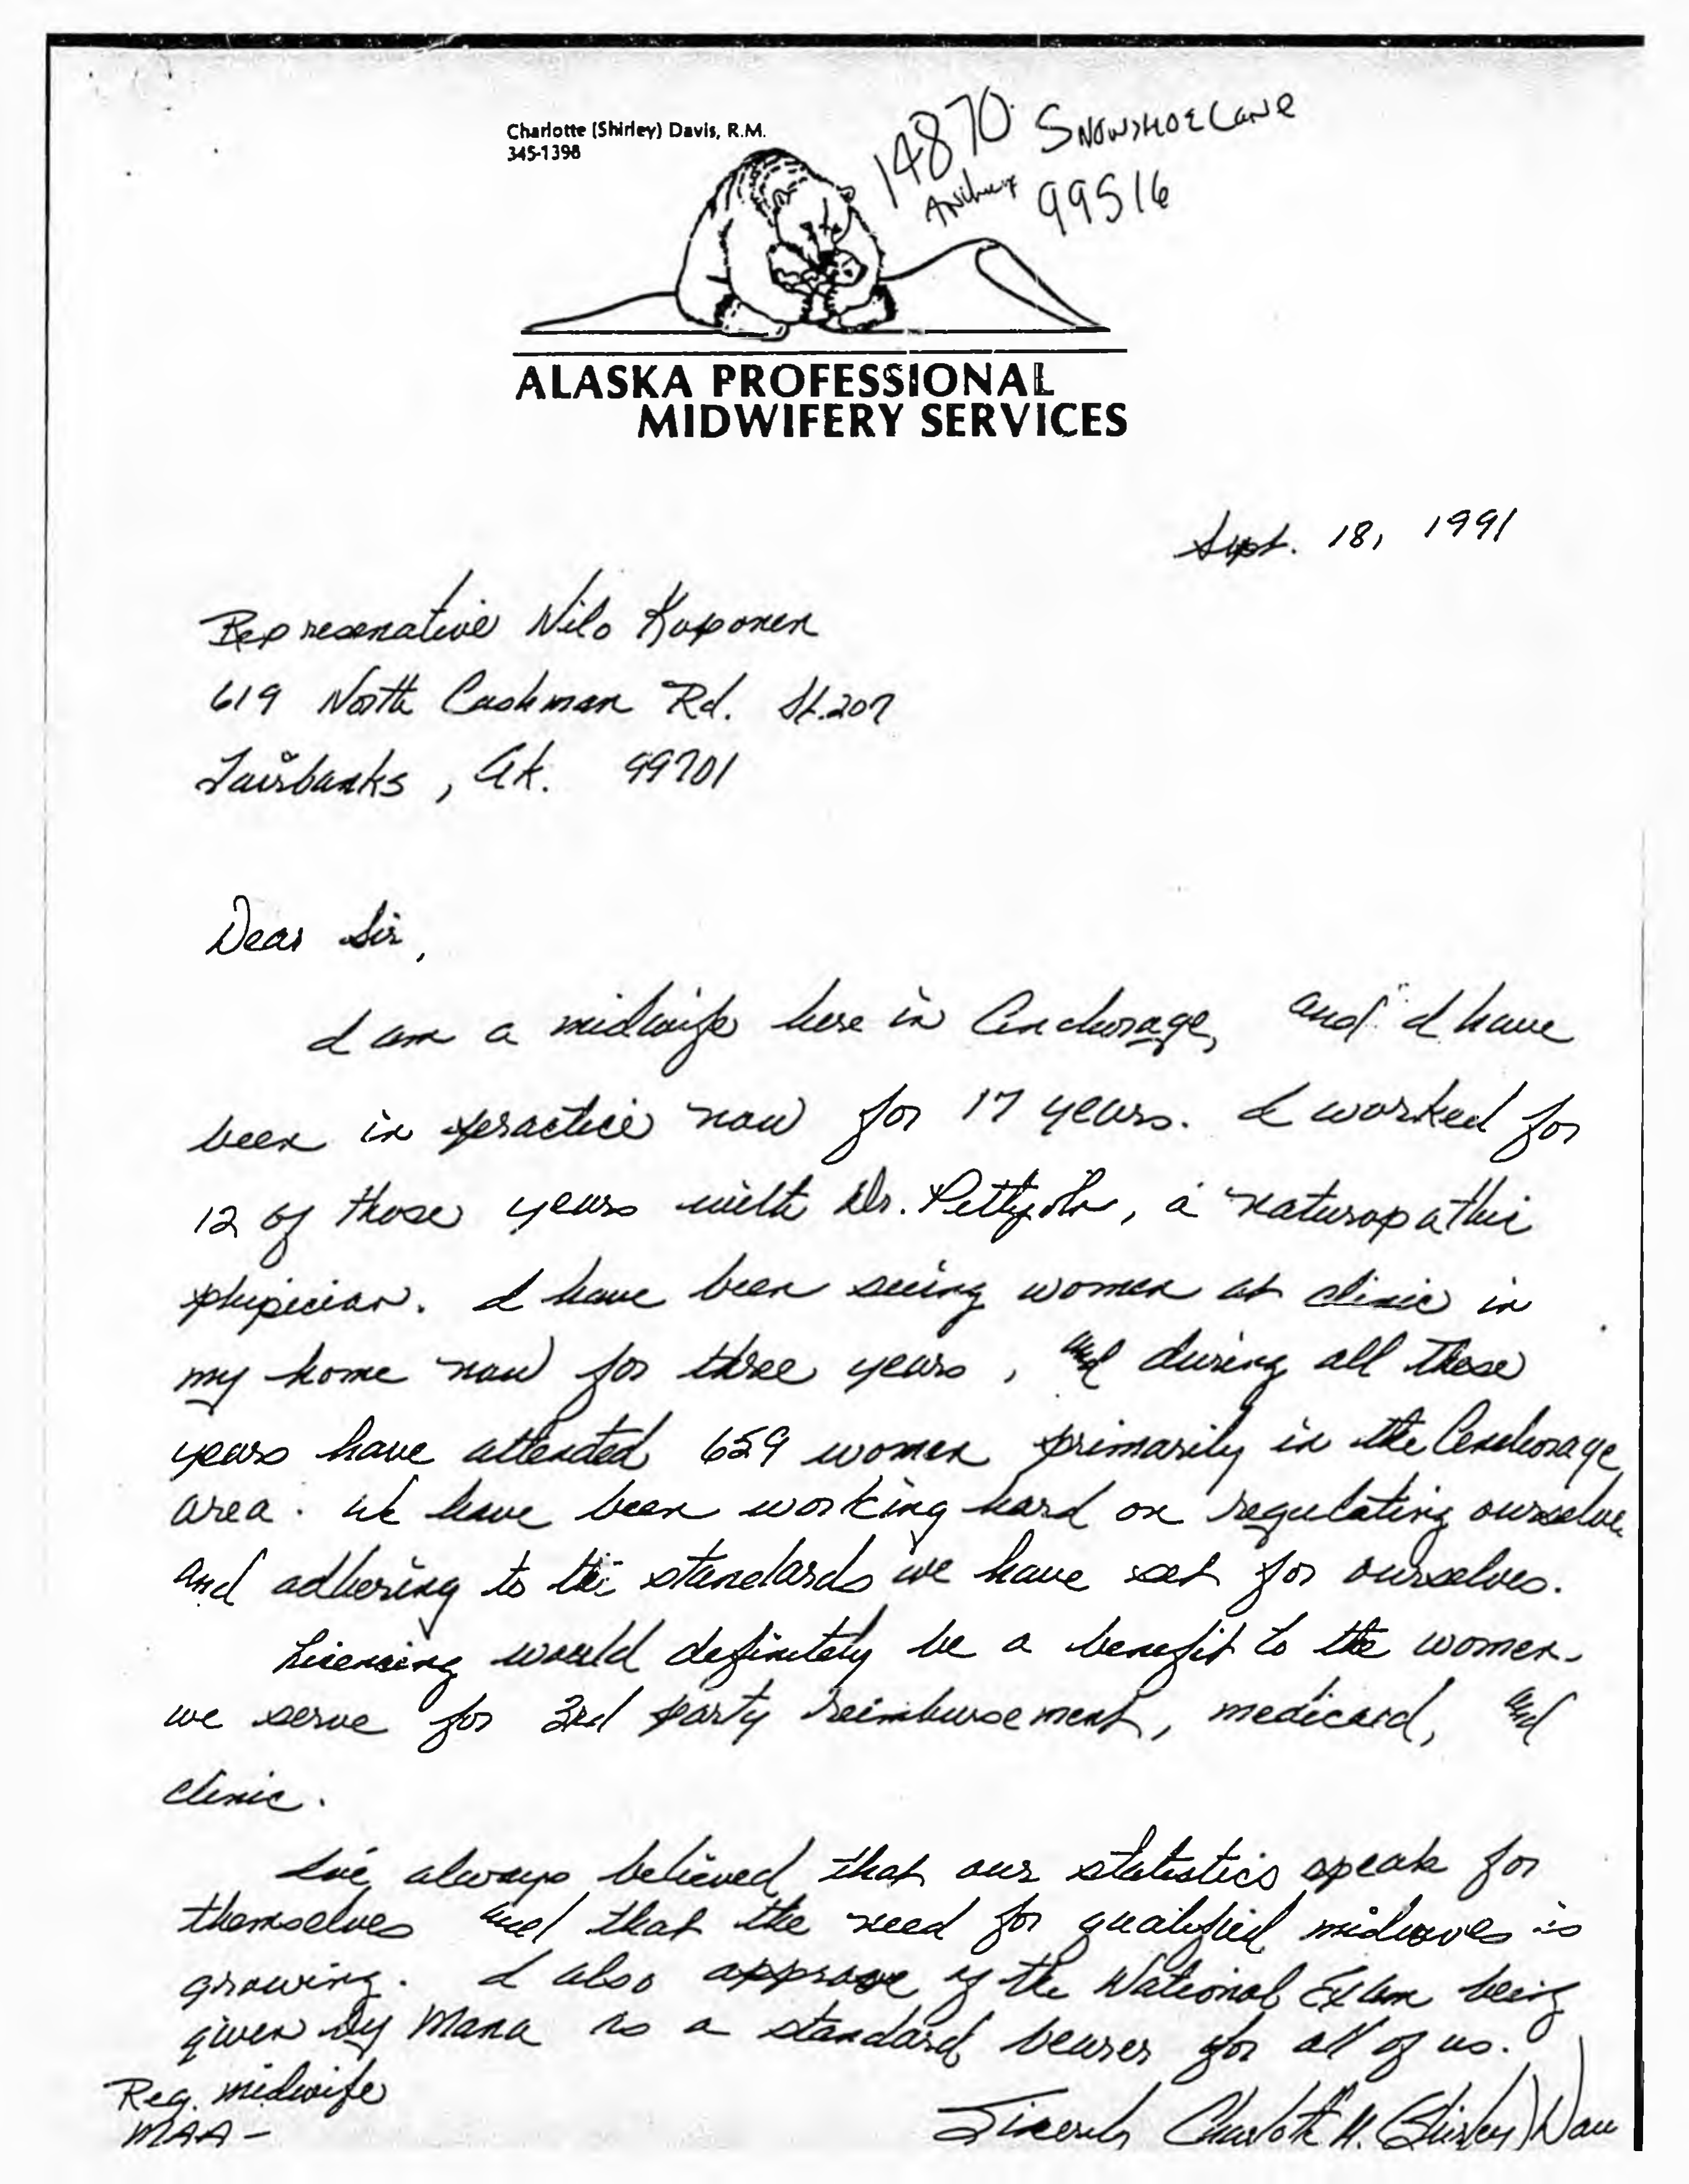 Charlotte (Shirley) Davis, R.M.
345-1398
14870 Snowshoe Lane
99516
ALASKA PROFESSIONAL
MIDWIFERY SERVICES
Sept. 18, 1991
Represenative Nilo Koponen
619 North Cushman Rd. St. 207
Fairbanks, Ak. 99701
Dear Sir,
I am a midwife here in Anchorage, and I have
been in practice now for 17 years. I worked for
12 of those years with Dr. , a naturopathic
physician. I have been seeing women at clinic in
my home now for three years, and during all these
years have attended 659 women primarily in the Anchorage
area. We have been working hard on regulating ourselves
and adhering to the standards we have set for ourselves.
Licensing would definitely be a benefit to the women
we serve for 3rd party reimbursement, medicaid, and
clinic.
I've always believed that our statistics speak for
themselves and that the need for qualified midwives is
growing. I also approve of the National Exam being
given by Mana as a standard bearer for all of us.
Reg. midwife
MAA -
Sincerely Charlotte M. (Shirley) Davis